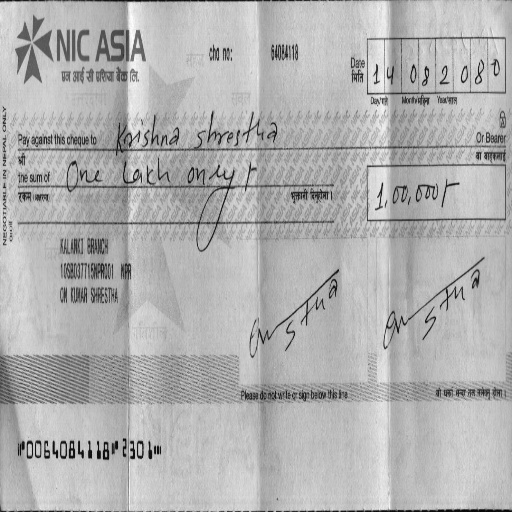 NIC ASIA
एन आई सी एशिया बैंक लि.
chq no: 64084118
Date 14 08 2080
मिति
Day/गते Month/महिना Year/साल
NEGOTIABLE IN NEPAL ONLY
Pay against this cheque to Krishna shrestha Or Bearer
श्री वा वाहकलाई
the sum of One Lakh only/-
रकम भुक्तानी दिनुहोला। 1,00,000/-
KALANKI BRANCH
10SB037715NPR001 NPR
OM KUMAR SHRESTHA
Please do not write or sign below this line
⑈0064084118⑈ 2301⑈